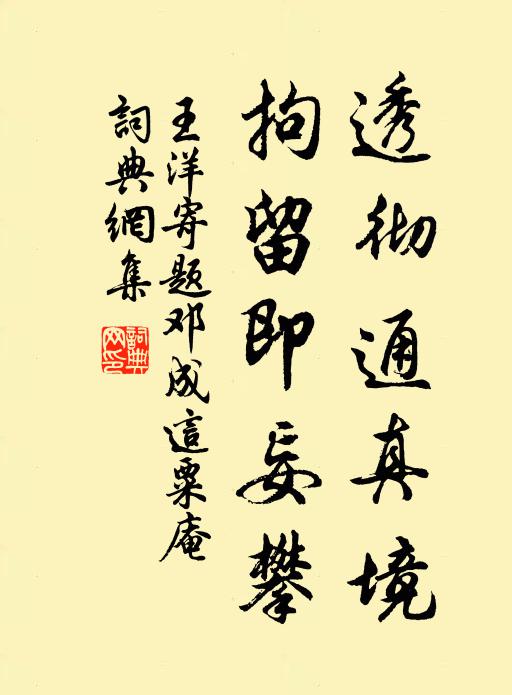 透彻通真境
拘留即妄攀
王洋寄题邓成這粟庵
詞典網集
詞典網印